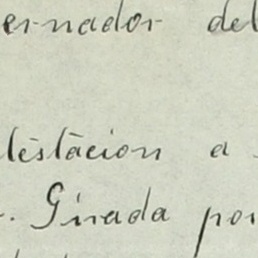 ernador del
testacion a
. Girada por